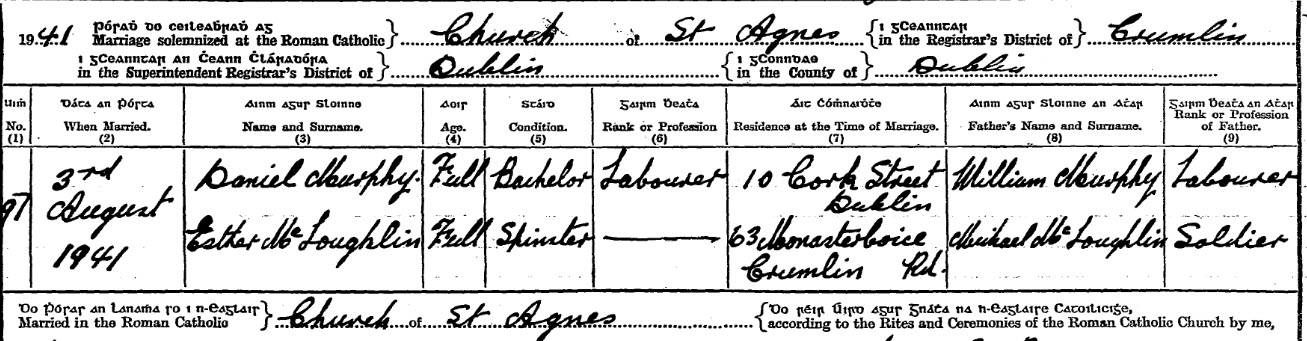 Pórad do ceileabrad ag
1941 Marriage solemnized at the Roman Catholic } Church of St Agnes { i gCeanntar in the Registrar's District of } Crumlin
i gCeanntar an Ceann Cláradóra
in the Superintendent Registrar's District of } Dublin { i gConndae in the County of } Dublin
Uim. Dáta an Pórta Ainm agus Sloinne Aois Stáid Gairm Beata Áit Cómnaidte Ainm agus Sloinne an Atar Gairm Beata an Atar
No. When Married. Name and Surname. Age. Condition. Rank or Profession Residence at the Time of Marriage. Father's Name and Surname. Rank or Profession of Father.
(1) (2) (3) (4) (5) (6) (7) (8) (9)
97 3rd August 1941
Daniel Murphy. Full Bachelor Labourer 10 Cork Street Dublin William Murphy Labourer
Esther McLoughlin Full Spinster 63 Monasterboice Rd. Crumlin Michael McLoughlin Soldier
Do pórad an lánama so i n-Eaglais
Married in the Roman Catholic } Church of St Agnes { Do réir Úird agus Gnáta na h-Eaglaise Catoilicige,
according to the Rites and Ceremonies of the Roman Catholic Church by me,